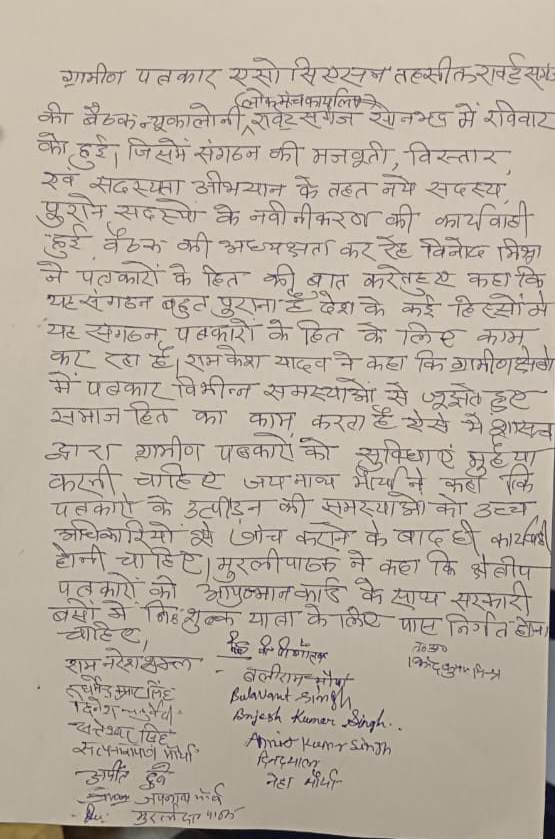 ग्रामीण पत्रकार एसोसिएसन तहसील राबर्ट्सगंज
की बैठक न्यू कालोनी लोकमंच कार्यालय राबर्ट्सगंज सोनभद्र में रविवार
को हुई। जिसमें संगठन की मजबूती, विस्तार
एवं सदस्यता अभियान के तहत नये सदस्य,
पुराने सदस्यों के नवीनीकरण की कार्यवाही
हुई बैठक की अध्यक्षता कर रहे विनोद मिश्रा
ने पत्रकारों के हित की बात करते हुए कहा कि
यह संगठन बहुत पुराना है देश के कई हिस्सों में
यह संगठन पत्रकारों के हित के लिए काम
कर रहा है। राम केश यादव ने कहा कि ग्रामीण क्षेत्रों
में पत्रकार विभीन्न समस्याओं से जूझते हुए
समाज हित का काम करता है ऐसे में शासन
द्वारा ग्रामीण पत्रकारों को सुविधाएं मुहैया
करानी चाहिए जय नाथ मौर्या ने कहा कि
पत्रकारों के उत्पीड़न की समस्याओं को उच्च
अधिकारियों से जाँच कराने के बाद ही कार्यवाही
होनी चाहिए। मुरली पाठक ने कहा कि क्षेत्रीय
पत्रकारों को आयुष्मान कार्ड के साथ सरकारी
बसों में निःशुल्क यात्रा के लिए पास निर्गत होना
चाहिए,
राम नरेश शुक्ल
बलीराम मौर्या
Bulavant Singh
Brijesh Kumar Singh.
Amit Kumar Singh
दिनेश चतुर्वेदी
सत्यनारायण मौर्या
दीनदयाल
नेहा मौर्या
अजीत दुबे
जयनाथ मौर्य